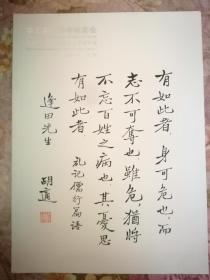 有如此者身可危也而
志不可奪也雖危猶將
不忘百姓之病也其憂思
有如此者 礼记儒行篇语
逢田先生
胡適